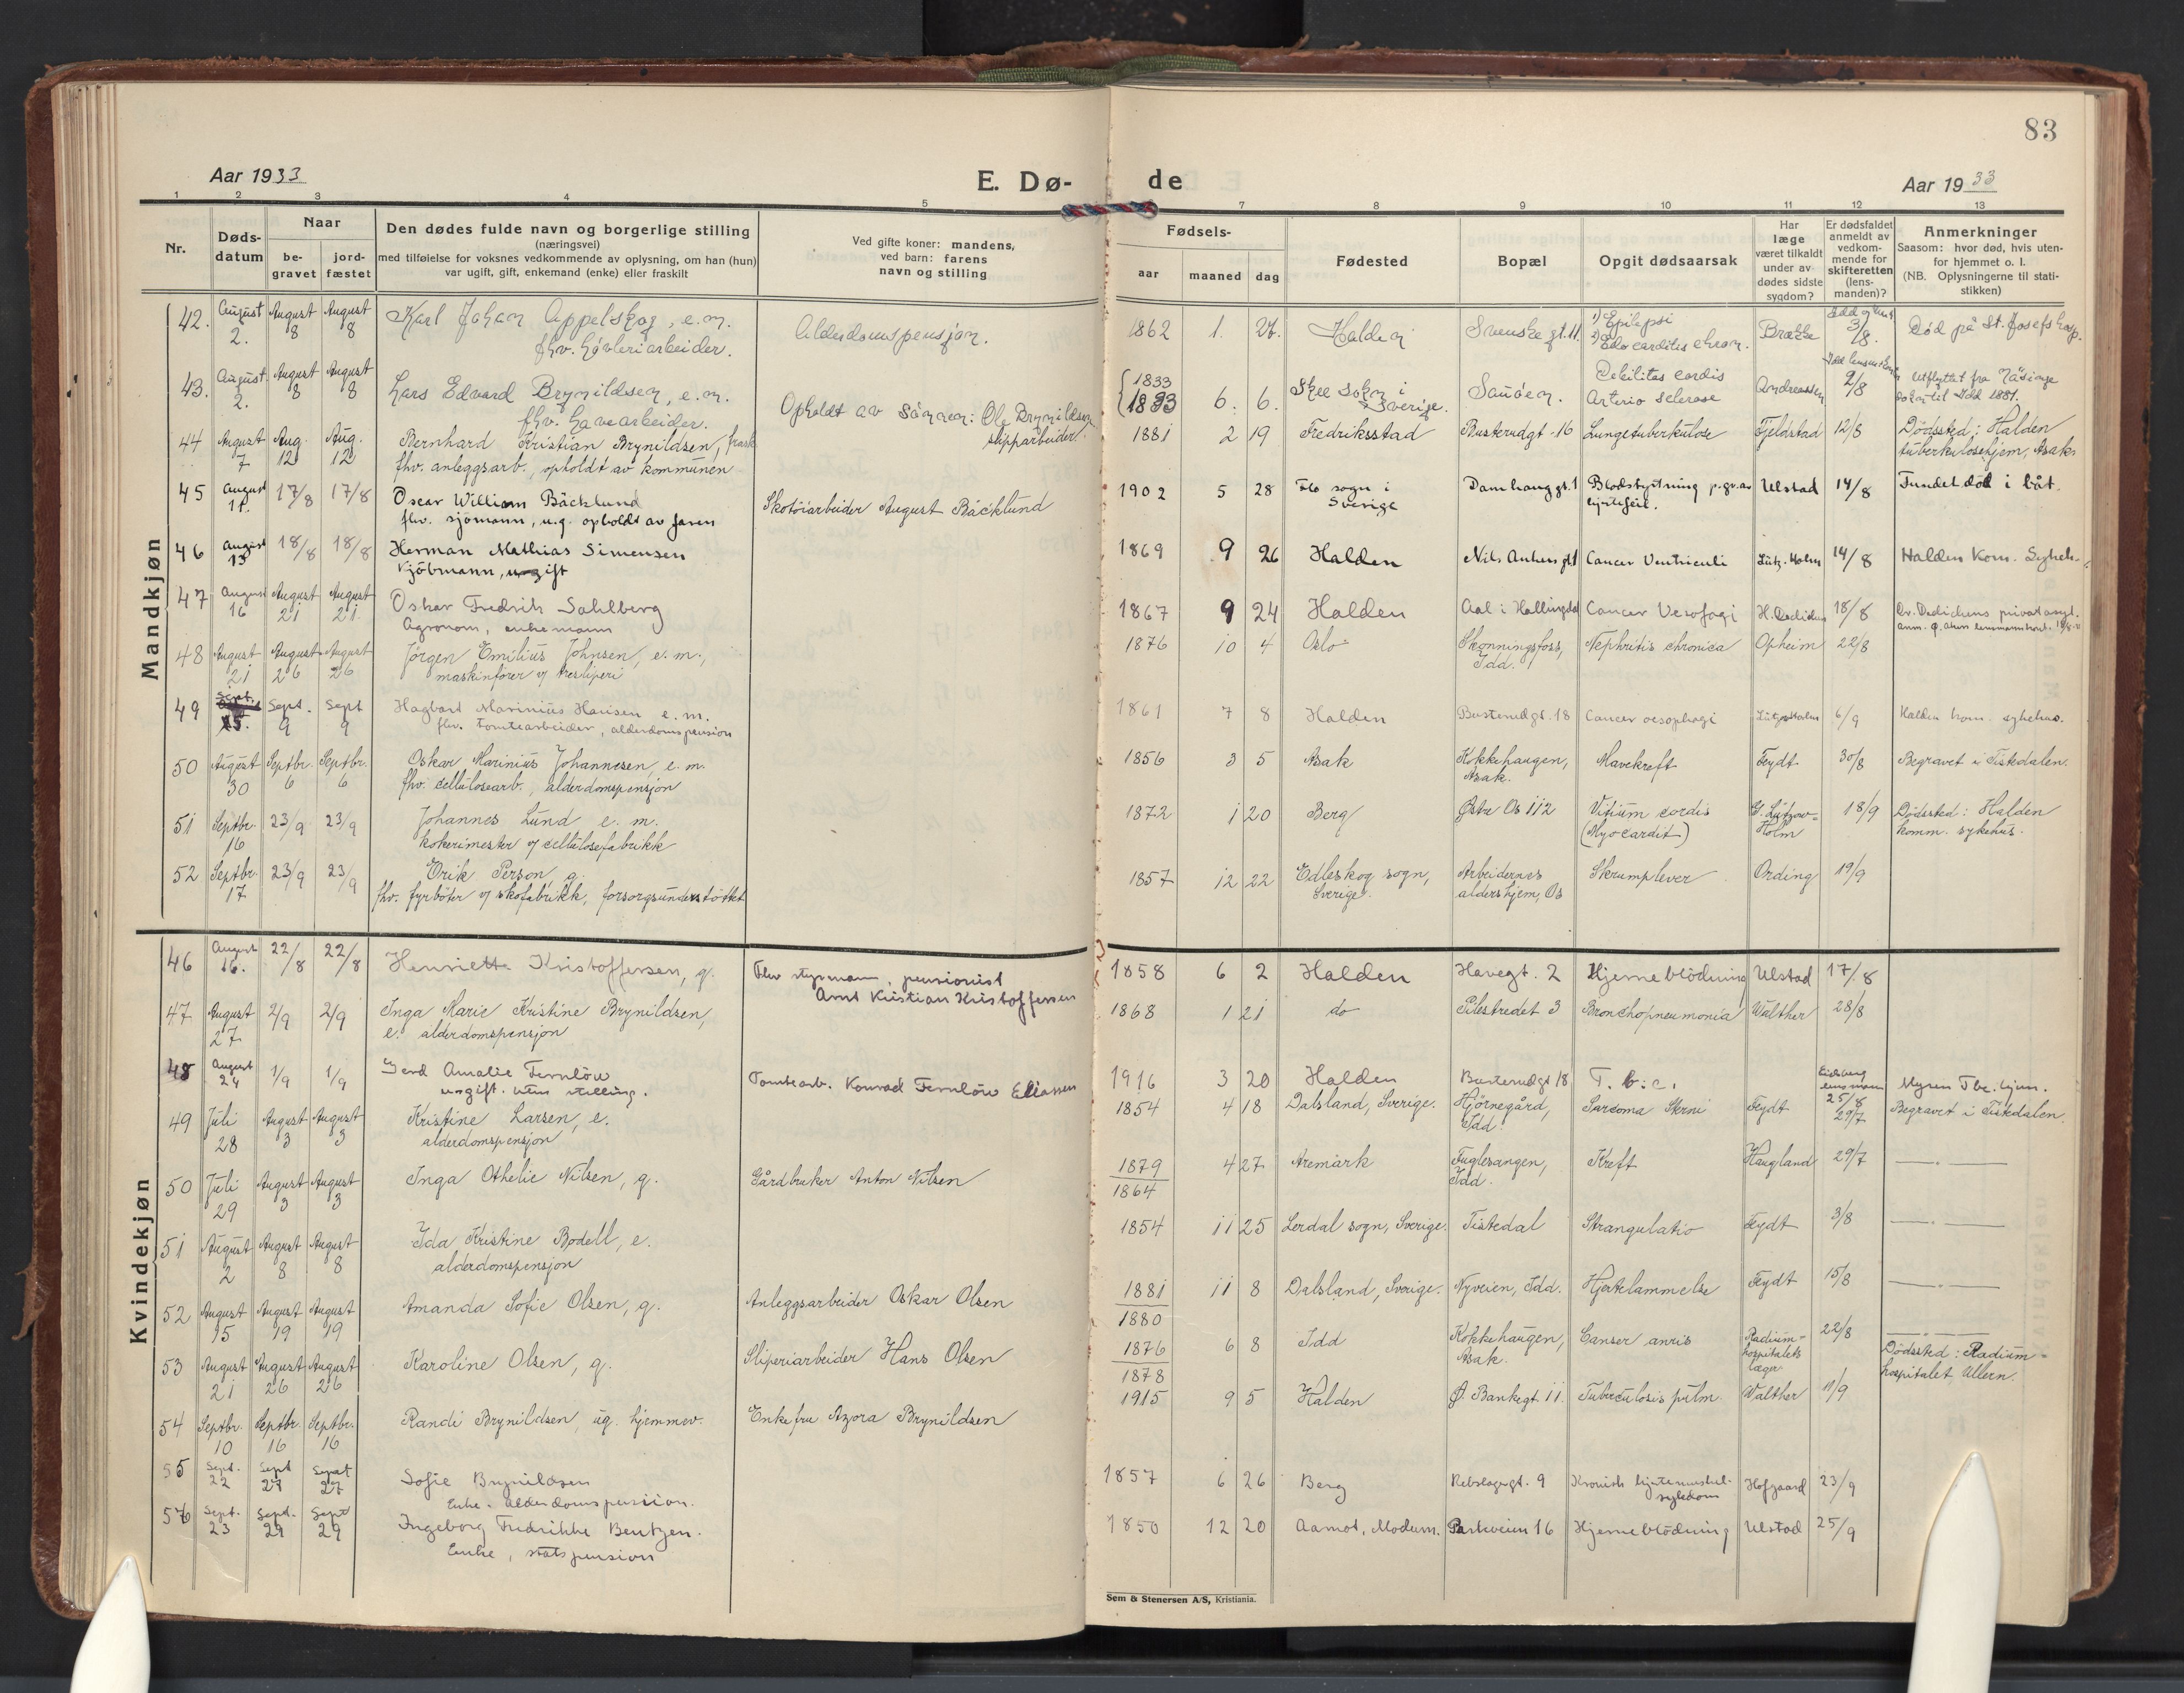 83
Aar 1933
E. Dø-
de
Aar 1933
1 2 3 4 5 7 8 9 10 11 12 13
Nr.
Døds-
datum
Naar
be-
gravet
jord-
fæstet
Den dødes fulde navn og borgerlige stilling
(næringsvei)
med tilføielse for voksnes vedkommende av oplysning, om han (hun)
var ugift, gift, enkemand (enke) eller fraskilt
Ved gifte koner: mandens,
ved barn: farens
navn og stilling
Fødsels-
aar maaned dag
Fødested
Bopæl
Opgit dødsaarsak
Har
læge
været tilkaldt
under av-
dødes sidste
sygdom?
Er dødsfaldet
anmeldt av
vedkom-
mende for
skifteretten
(lens-
manden)?
Anmerkninger
Saasom: hvor død, hvis uten-
for hjemmet o. l.
(NB. Oplysningerne til stati-
stikken)
Mandkjøn
42. August 2. August 8 August 8 Karl Johan Appelskog, e.m. fhv. høvleriarbeider. Alderdomspensjon. 1862 1. 27. Halden Svenskegt. 11. 1) Epilepsi 2) Brække 3/8. Død på St. Josefs hosp.
43. August 2. August 8 August 8 Lars Edvard Brynildsen, e.m. fhv. havearbeider. Opholdt av sønnen: Ole Brynildsen slipparbeider. 1833 1833 6. 6. Skee sokn i Sverige. Sauøen. Debilitas cordis Arterio sclerose Andreassen 2/8 Utflyttet fra til Idd 1881.
44 August 7 Aug. 12 Aug. 12 Bernhard Kristian Brynildsen, frask. fhv. anleggsarb., opholdt av kommunen 1881 2 19 Fredriksstad Busterudgt. 16 Lungetuberkulose Fjeldstad 12/8 Dødssted: Halden tuberkulosehjem, Asak.
45 August 11. 17/8 17/8 Oscar William Bäcklund fhv. sjømann, u.g. opholdt av faren Skotøiarbeider August Bäcklund 1902 5 28 Flo sogn i Sverige Damhauggt. 1 Blodstyrtning p.gr.av hjertefeil. Ulstad 14/8 Fundet død i båt.
46 August 13 18/8 18/8 Herman Mathias Simensen kjøbmann, ugift 1869 9 26 Halden Nils Ankers gt. 1 Cancer Ventriculi Lütz. Holm 14/8 Halden Kom. Sykeh.
47 August 16 August 21 August 21. Oskar Fredrik Sahlberg Agronom, enkemann 1867 9 24 Halden Aal i Hallingdal Cancer Oesofagi H. Dedichen 18/8 Dr. Dedichens privat asyl.
48 August 21 August 26 August 26 Jørgen Emilius Johnsen, e.m., maskinfører v/ tresliperi 1876 10 4 Oslo Skonningsfoss, Idd. Nephritis chronica Opheim 22/8
49 Sept. 5. Sept. 9 Sept 9 Hagbart Marinius Hansen e.m. fhv. tomtearbeider, alderdomspension 1861 7 8 Halden Busterudgt. 18 Cancer oesophagi Lützow Holm 6/9 Halden kom. sykehus.
50 August 30 Septbr. 6 Septbr. 6 Oskar Marinius Johannesen, e.m. fhv. cellulosearb., alderdomspensjon 1856 3 5 Asak Kokkehaugen, Asak. Mavekreft Feydt 30/8 Begravet i Tistedalen.
51 Septbr. 16 23/9 23/9 Johannes Lund e.m. kokerimester v/ cellulosefabrikk 1872 1 20 Berg Østre Os 112 Vitium cordis (Myocardit) G. Lützow-Holm 18/9 Dødssted: Halden komm. sykehus.
52 Septbr. 17 23/9 23/9 Erik Person g. fhv. fyrbøter v/ skofabrikk, forsorgsunderstøttet 1857 12 22 Edleskog sogn, Sverige. Arbeidernes aldershjem, Os Skrumplever Ording 19/9
Kvindekjøn
46 August 16. 22/8 22/8 Henriette Kristoffersen, g. Fhv styrmann, pensionist Arnt Kristian Kristoffersen 1858 6 2 Halden Havegt. 2 Hjerneblødning Ulstad 17/8
47 August 27 2/9 2/9 Inga Marie Kristine Brynildsen, e. alderdomspensjon 1868 1 21 do Pilestredet 3 Bronchopneumonia Walther 28/8
48 August 24 1/9 1/9 Gerd Amalie Fernlöw ugift. uten stilling. Tomtearb. Konrad Fernlöw Eliassen 1916 3 20 Halden Busterudgt 18 T.b.c. Eidsberg lensmann 25/8 Mysen Tbc. hjem.
49 Juli 28 August 3 August 3 Kristine Larsen, e. alderdomspensjon 1854 4 18 Dalsland, Sverige. Hjørnegård, Idd. Sarcoma Feydt 29/7 Begravet i Tistedalen.
50 Juli 29 August 3 August 3 Inga Othelie Nilsen, g. Gårdbruker Anton Nilsen 1879 1864 4 27 Aremark Fuglesangen, Idd. Kreft Haugland 29/7 —"—
51 August 2 August 8 August 8 Ida Kristine Bodell, e. alderdomspensjon 1854 11 25 Lerdal sogn, Sverige. Tistedal Strangulatio Feydt 3/8 —"—
52 August 15 August 19 August 19 Amanda Sofie Olsen, g. Anleggsarbeider Oskar Olsen 1881 1880 11 8 Dalsland, Sverige. Nyveien, Idd. Hjertelammelse Feydt 15/8 —"—
53 August 21 August 26 August 26 Karoline Olsen, g. Sliperiarbeider Hans Olsen 1876 1878 6 8 Idd Kokkehaugen, Asak. Canser Radium-hospitalets læger 22/8 —"— Dødssted: Radium-hospitalet Ullern.
54 Septbr. 10 Septbr. 16 Septbr. 16 Randi Brynildsen, ug. hjemmev. Enkefru Azora Brynildsen 1915 9 5 Halden Ø. Bankegt 11. Tuberculosis pulm. Walther 11/9
55 Sept. 22 Sept 27 Sept 27 Sofie Brynildsen Enke. alderdomspension. 1857 6 26 Berg Rebslagergt. 9 Kronisk hjertemuskel-sykdom Hofgaard 23/9
56 Sept. 23 Sept. 29 Sept 29 Ingeborg Fredrikke Bentzen. Enke, statspension 1850 12 20 Aamot, Modum. Parkveien 16 Hjerneblødning Ulstad 25/9
Sem & Stenersen A/S, Kristiania.